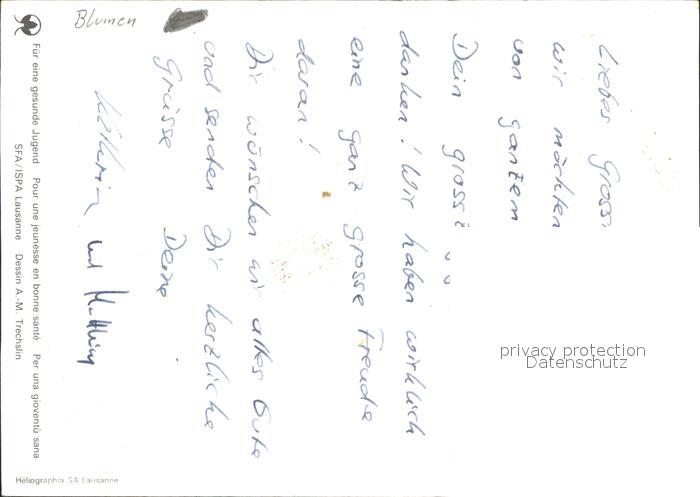 Blumen
Liebes Gross
wir möchten
von ganzem
Dein gross
danken! Wir haben wirklich
eine ganz grosse Freude
daran!
Dir wünschen wir alles Gute
und senden Dir herzliche
Grüsse Deine
Kathrin und Matthias
Für eine gesunde Jugend Pour une jeunesse en bonne santé Per una gioventù sana
SFA/ISPA Lausanne Dessin A.-M. Trechslin
Héliographia SA Lausanne
privacy protection
Datenschutz